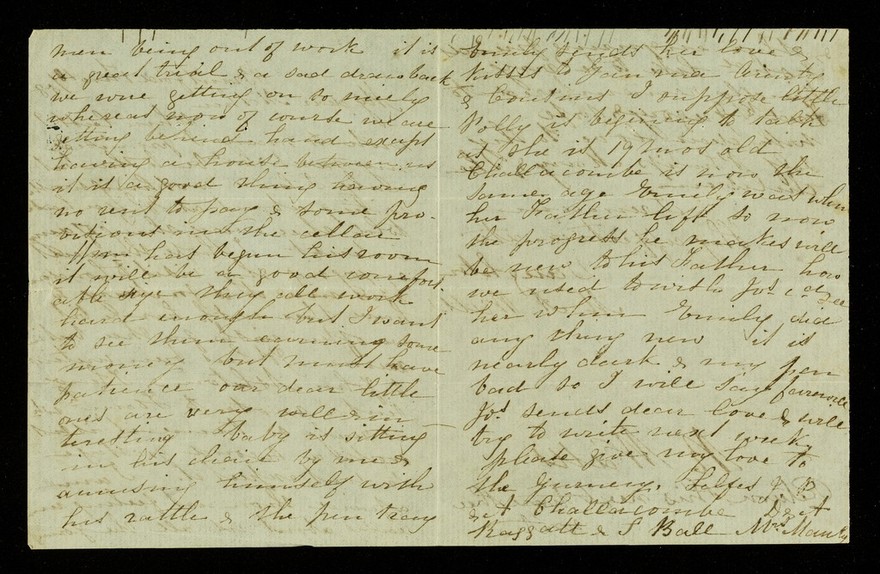 men being out of work it is
a great trial & a sad drawback
we were getting on so nicely
whereas now of course we are
getting behind hand except
having a house between us
it is a good thing having
no rent to pay & some pro-
visions in the cellar
Wm has begun his room
it will be a good comfort
able size they all work
hard enough but I want
to see them earning some
money but must have
patience our dear little
ons are very well & in
teresting baby is sitting
in his chair by me &
amusing himself with
his rattle & the pen tray
Emily sends her love &
kisses to Grandma Aunty
& Cousins I suppose little
Polly is begining to talk
as she is 19 mos old
Challacombe is now the
same age Emily was when
her Father left so now
the progress he makes will
be new to his Father how
we used to wish Jos cd see
her when Emily did
any thing new it is
nearly dark & my pen
bad so I will say farewell
Jos sends dear love & will
try to write next week
please give my love to
the Gurneys,
& A Challacombe
Baggott & S Ball Mrs